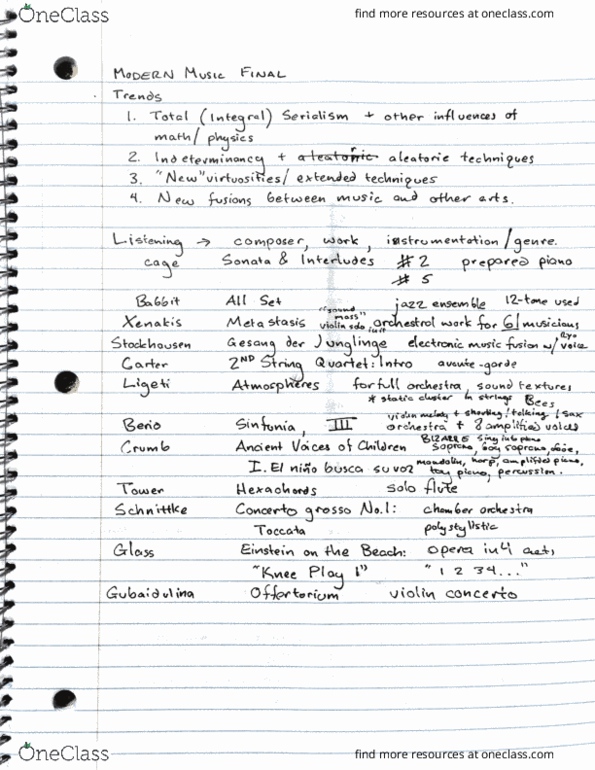 OneClass
find more resources at oneclass.com
MODERN MUSIC FINAL
Trends
1. Total (Integral) Serialism + other influences of
math/physics
2. Indeterminancy + aleatoric aleatoric techniques
3. "New" virtuosities/extended techniques
4. New fusions between music and other arts.
Listening → composer, work, instrumentation/genre.
cage Sonata & Interludes #2 prepared piano
#5
Babbit All Set jazz ensemble 12-tone used
"sound mass"
Xenakis Metastasis violin solo orchestral work for 61 musicious
Stockhausen Gesang der Junglinge electronic music fusion w/ voice
Carter 2ND String Quartet: Intro avante-garde
Ligeti Atmospheres for full orchestra, sound textures
* static cluster in strings Bees
violin melody + shouting/talking/sax
Berio Sinfonia, III orchestra + 8 amplified voices
BIZARRE sing into piano
Crumb Ancient Voices of Children soprano, boy soprano, oboe,
I. El niño busca su voz mandolin, harp, amplified piano,
toy piano, percussion.
Tower Hexachords solo flute
Schnittke Concerto grosso No.1: chamber orchestra
Toccata polystylistic
Glass Einstein on the Beach: opera in 4 acts,
"Knee Play 1" "1 2 3 4..."
Gubaidulina Offertorium violin concerto
OneClass
find more resources at oneclass.com